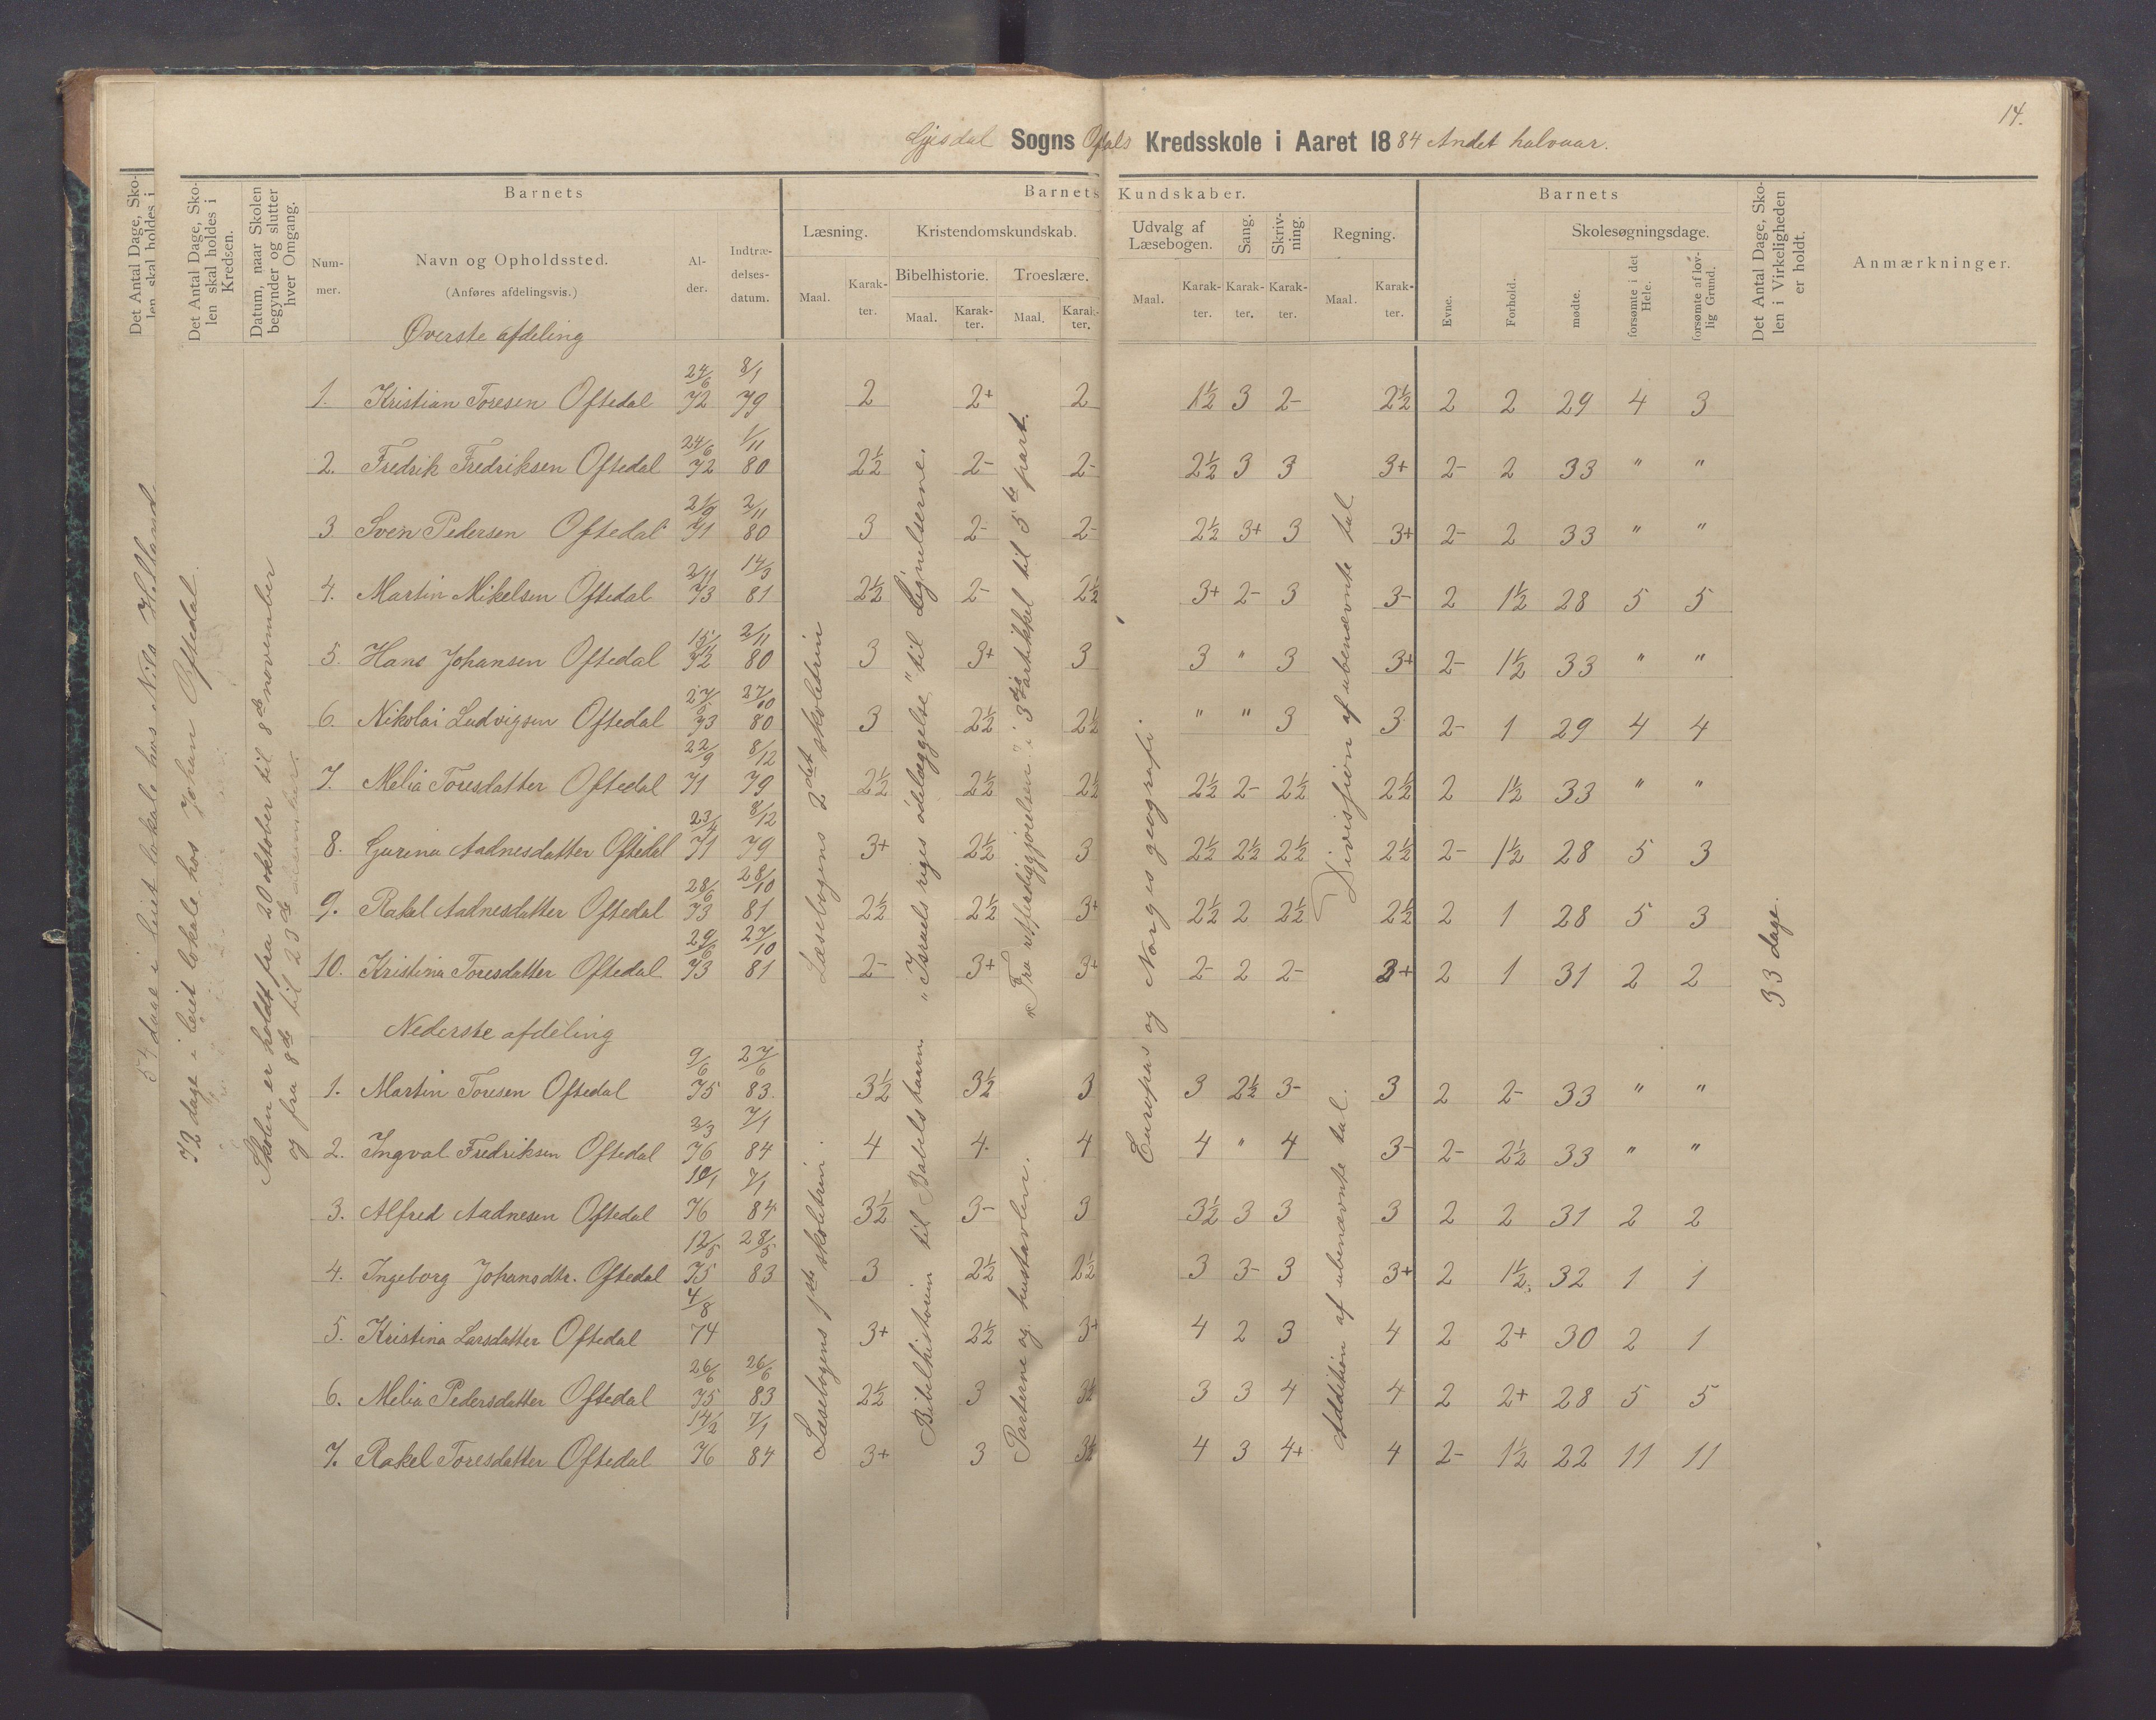 14.
Gjesdal Sogns Ofdals Kredsskole i Aaret 1884 Andet halvaar.
Det Antal Dage, Sko-
len skal holdes i
Det Antal Dage, Sko-
len skal holdes i
Kredsen.
Datum, naar Skolen
begynder og slutter
hver Omgang.
Barnets
Num-
mer.
Navn og Opholdssted.
(Anføres afdelingsvis.)
Al-
der.
Indtræ-
delses-
datum.
Barnets Kundskaber.
Læsning.
Maal.
Karak-
ter.
Kristendomskundskab.
Bibelhistorie.
Maal.
Karak-
ter.
Troeslære.
Maal.
Karak-
ter.
Udvalg af
Læsebogen.
Maal.
Karak-
ter.
Sang.
Karak-
ter.
Skriv-
ning.
Karak-
ter.
Regning.
Maal.
Karak-
ter.
Barnets
Evne.
Forhold.
Skolesøgningsdage.
mødte.
forsømte i det
Hele.
forsømte af lov-
lig Grund.
Det Antal Dage, Sko-
len i Virkeligheden
er holdt.
Anmærkninger.
72 dage i leiet lokale hos Johan Oftedal.
Skolen er holdt fra 20 oktober til 8de november
og fra 8de til 23de
Øverste afdeling
1. Kristian Toresen Oftedal 24/6 72 8/1 79 2 2+ 2 1½ 3 2- 2½ 2 2 29 4 3
2. Fredrik Fredriksen Oftedal 24/6 72 1/11 80 2½ 2- 2- 2½ 3 3 3+ 2- 2 33 " "
3 Sven Pedersen Oftedal 21/9 71 2/11 80 3 2- 2- 2½ 3+ 3 3+ 2- 2 33 " "
4. Martin Mikelsen Oftedal 2/11 73 14/3 81 2½ 2- 2½ 3+ 2- 3 3- 2 1½ 28 5 5
5. Hans Johansen Oftedal 15/11 72 2/11 80 3 3+ 3 3 " 3 3+ 2- 1½ 33 " "
6. Nikolai Ludvigsen Oftedal 27/6 73 27/10 80 3 2½ 2½ " " 3 3 2- 1 29 4 4
7. Melia Toresdatter Oftedal 22/9 71 8/12 79 2½ 2½ 2½ 2½ 2- 2½ 2½ 2 1½ 33 " "
8. Gurina Aadnesdatter Oftedal 23/4 71 8/12 79 3+ 2½ 3 2½ 2½ 2½ 2½ 2- 1½ 28 5 3
9. Rakel Aadnesdatter Oftedal 28/6 73 28/10 81 2½ 2½ 3+ 2½ 2 2½ 2½ 2 1 28 5 3
10. Kristina Toresdatter Oftedal 29/6 73 27/10 81 2- 3+ 3+ 2- 2 2- 3+ 2 1 31 2 2
Læsebogens 2det skoletrin
"Israels riges ødelæggelse" til Lignelserne.
"Fra retfærdiggjørelsen" i 3die artikkel til 5te part.
Europas og Norges geografi.
Divisjion af ubenævnte tal
33 dage.
Nederste afdeling
1. Martin Toresen Oftedal 9/6 75 27/6 83. 3½ 3½ 3 3 2½ 3- 3 2 2- 33 " "
2. Ingval Fredriksen Oftedal 2/3 76 7/1 84 4 4. 4 4 " 4 3- 2- 2½ 33 " "
3. Alfred Aadnesen Oftedal 10/1 76 7/1 84 3½ 3- 3 3½ 3 3 3 2 2 31 2 2
4. Ingeborg Johansdtr. Oftedal 12/5 75 28/5 83 3 2½ 2½ 3 3- 3 3+ 2 1½ 32 1 1
5. Kristina Larsdatter Oftedal 4/8 74 3+ 2½ 3+ 4 2 3 4 2 2+ 30 2 1
6. Melia Pedersdatter Oftedal 26/6 75 26/6 83 2½ 3 3½ 3 3 4 4 2 2+ 28 5 5
7. Rakel Toresdatter Oftedal 14/2 76 7/1 84 3+ 3 3½ 4 3 4+ 4 2- 1½ 22 11 11
Læsebogens 1ste skoletrin.
Bibelhistorien til Babels taarn
Parterne og hustavlen.
Addition af ubenævnte tal.